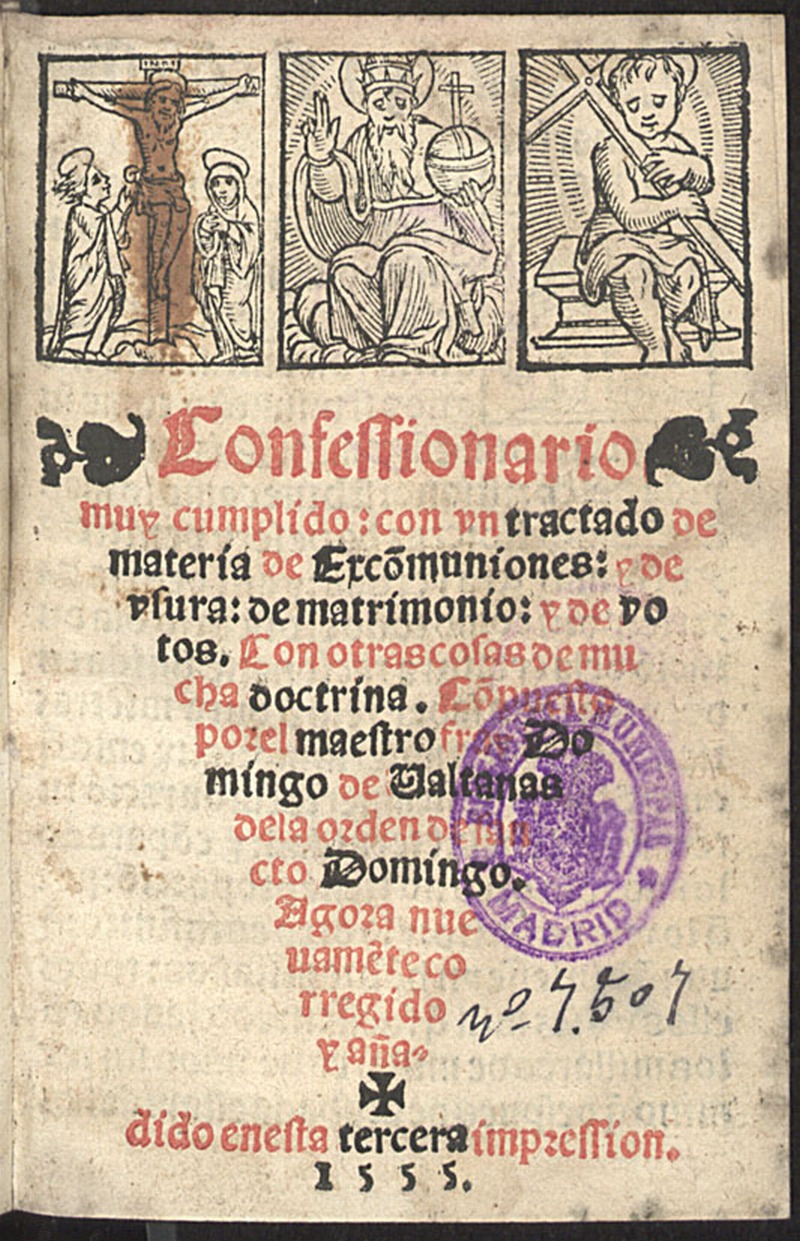 INRI
Confessionario
muy cumplido: con vn tractado de
materia de Excõmuniones: y de
vsura: de matrimonio: y de vo
tos. Con otras cosas de mu
cha doctrina. Cõpuesto
por el maestro fray Do
mingo de Ualtanas
dela orden de san
cto Domingo.
Agora nue
uamẽte co
rregido
y aña-
dido enesta tercera impression.
1555.
BIBLIOTECA MUNICIPAL
MADRID
nº 7.507